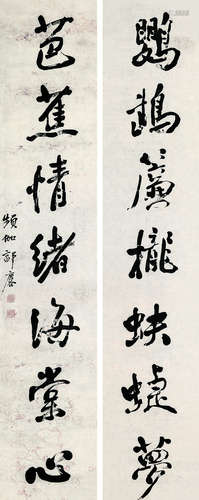 鸚鵡簾櫳蛺蝶夢
芭蕉情緒海棠心
頻伽郭麐